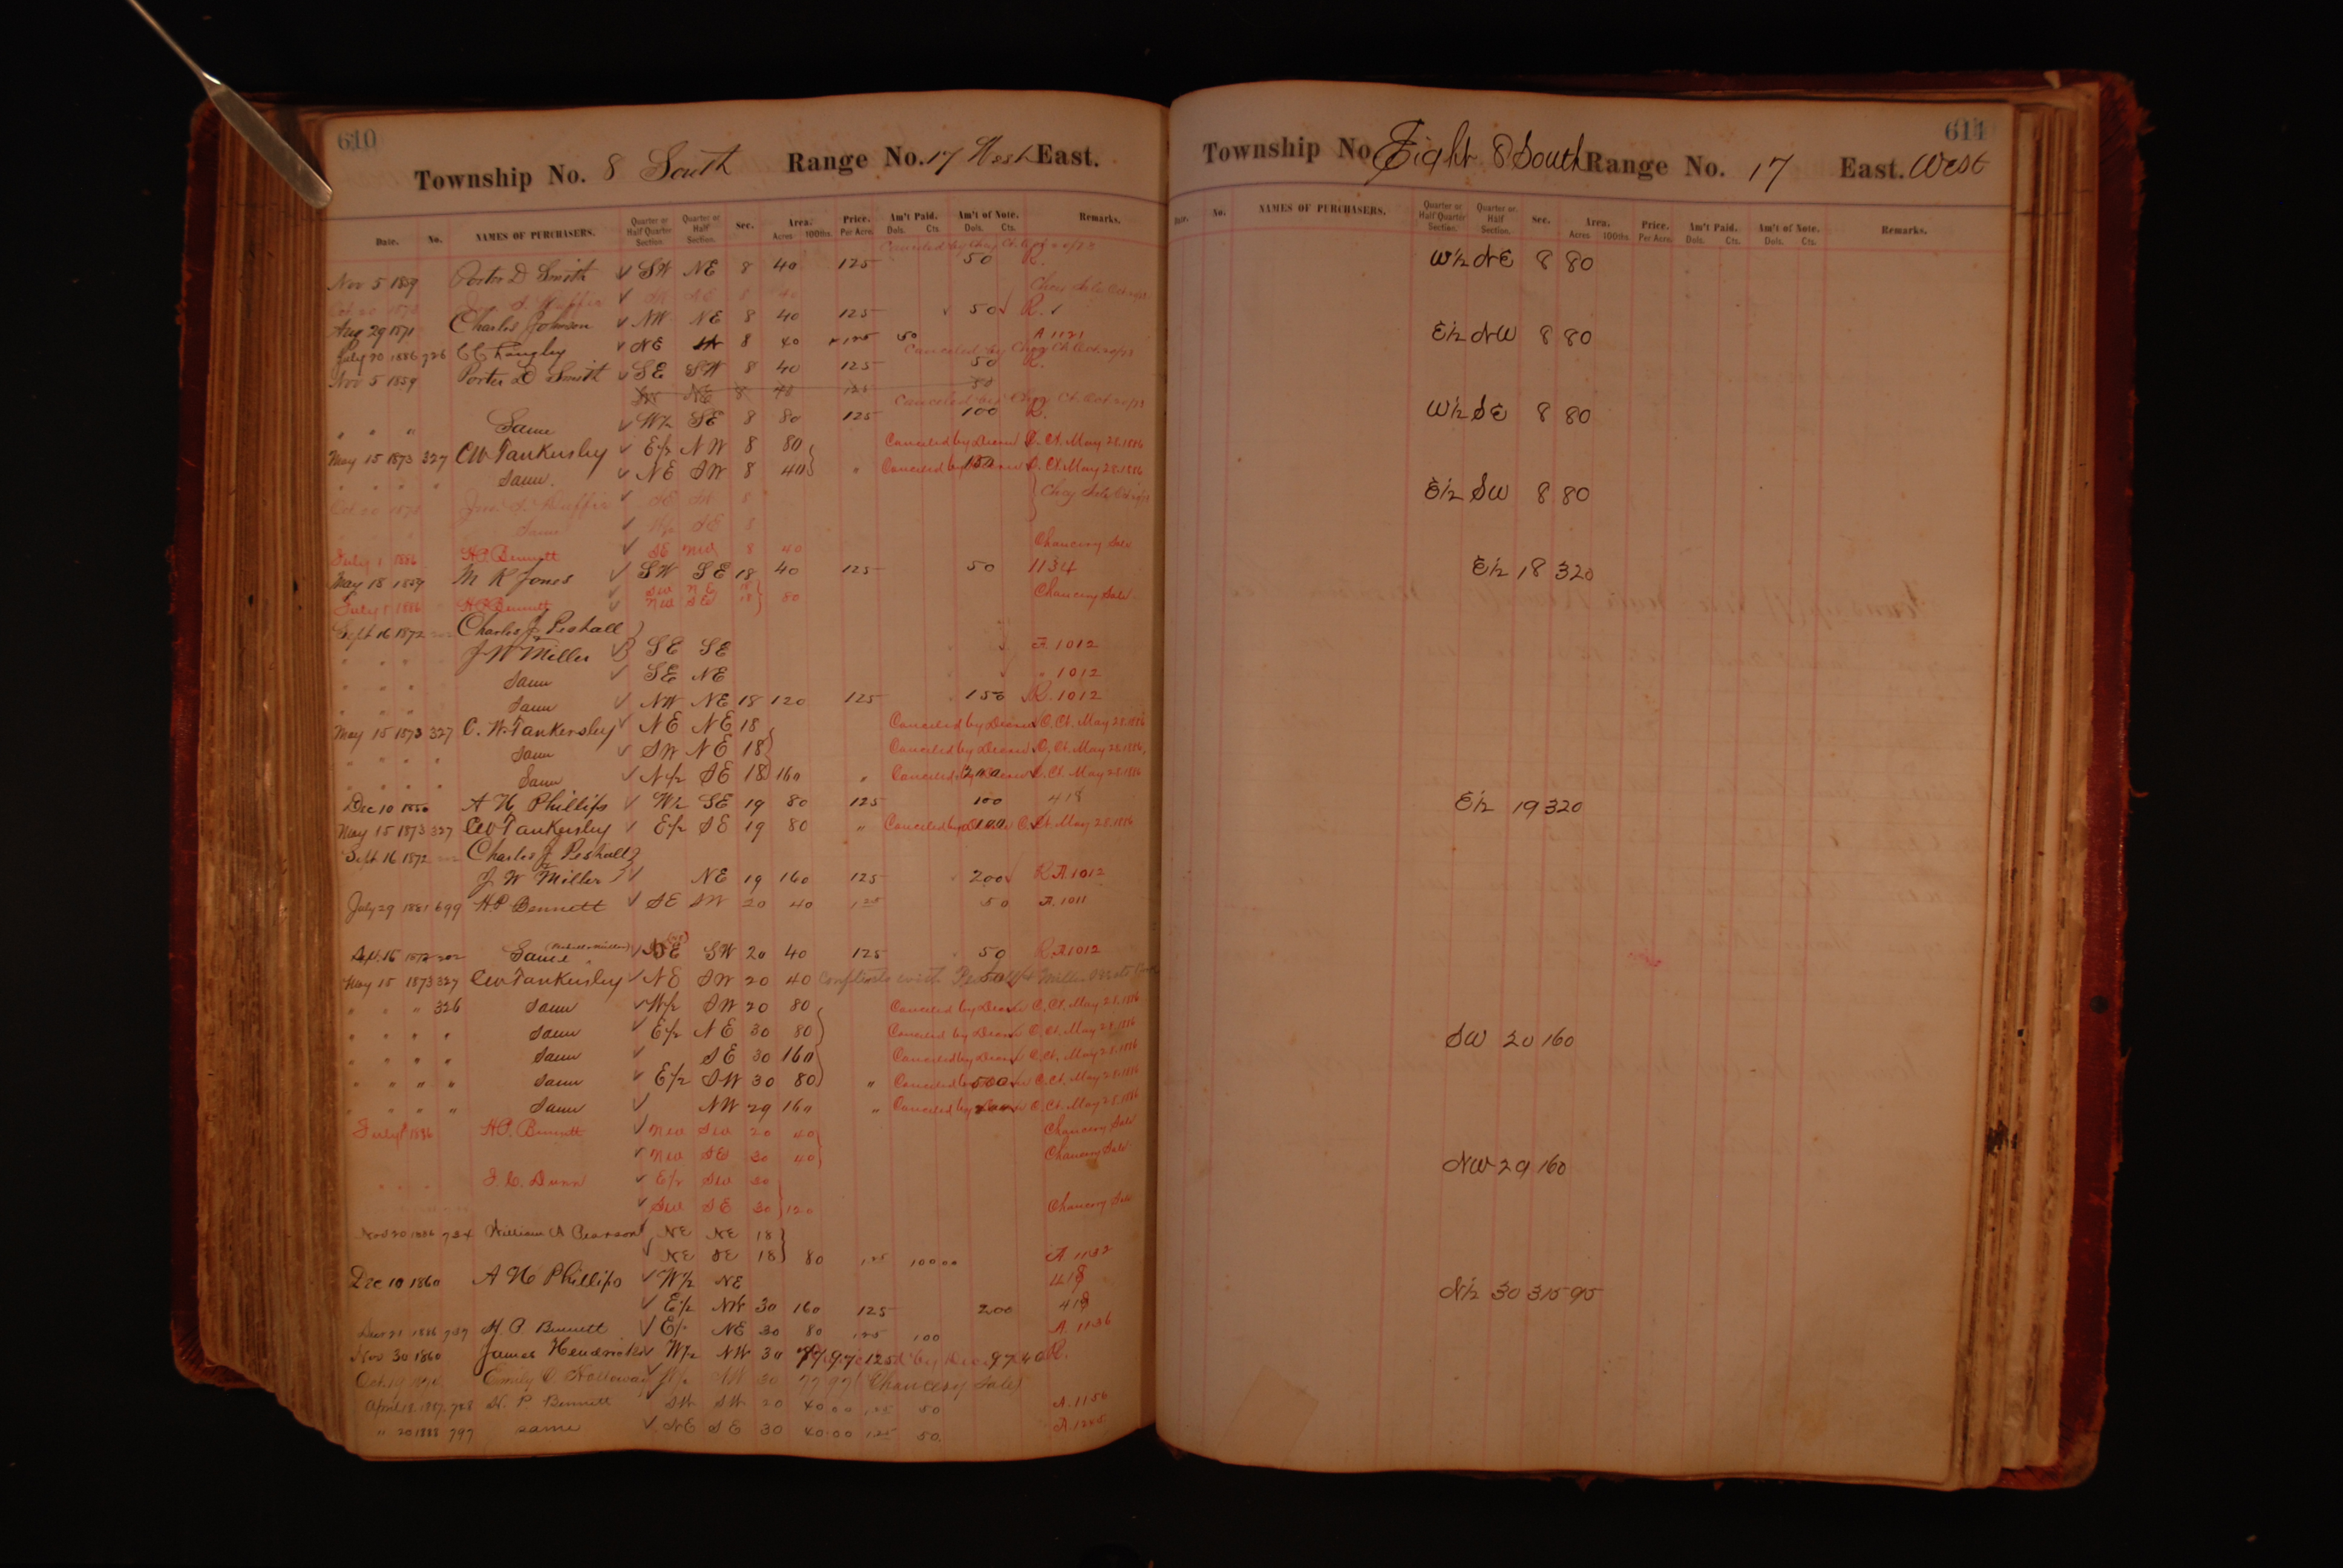 610
Township No. 8 South Range No. 17 West East.
Date. No. NAMES OF PURCHASERS. Quarter or Half Quarter Section. Quarter or Half Section. Sec. Area. Acres 100ths. Price. Per Acre. Am't Paid. Dols. Cts. Am't of Note. Dols. Cts. Remarks.
Nov 5 1859 Porter D Smith ✓ SW NE 8 40 125 50 R.
✓ 8 40 Chcy Sale
Aug 29 1871 Charles Johnson ✓ NW NE 8 40 125 ✓ 50 ✓ R. ✓
July 20 1886 726 C C Langley ✓ NE SW 8 40 125 50 A 1121
Nov 5 1859 Porter D Smith ✓ SE SW 8 40 125 50 R.
SW NE 8 40 125 50
" " " Same ✓ W½ SE 8 80 125 100 R.
May 15 1873 327 CW Tankersley ✓ E½ NW 8 80 Canceled by Decree C. Ct. May 28. 1886
" " " " Same. ✓ NE SW 8 40 " Canceled by Decree 150 C. Ct. May 28. 1886
✓ SE SW 8 Chcy Sale
Same ✓ W½ SE 8
July 1 1886 H.P. Bennett ✓ SE NW 8 40 Chancery Sale
May 18 1859 M K Jones ✓ SW SE 18 40 125 50 1134
✓ SW NE 18
July 1 1886 H.P. Bennett ✓ NW SE 18 80 Chancery Sale
Sept 16 1872 Charles J. Peshall
" " " J W Miller ✓ SE SE A. 1012
" " " Same ✓ SE NE " 1012
" " " Same ✓ NW NE 18 120 125 150 R. 1012
May 15 1873 327 C. W. Tankersley ✓ NE NE 18 Canceled by Decree C. Ct. May 28. 1886
" " " " Same ✓ SW NE 18 Canceled by Decree C. Ct. May 28. 1886
" " " " Same ✓ N½ SE 18 160 " Canceled by Decree 200 C. Ct. May 28. 1886
Dec 10 1860 A H Phillips ✓ W½ SE 19 80 125 100 418
May 15 1873 327 CW Tankersley ✓ E½ SE 19 80 " Canceled by Decree 100 C. Ct. May 28. 1886
Sept 16 1872 Charles J Peshall
J W Miller ✓ NE 19 160 125 200 ✓ R A. 1012
July 29 1881 699 H.P Bennett ✓ SE SW 20 40 1 25 50 A. 1011
Sept. 16 1872 202 Same (Peshall & Miller) ✓ SE SW 20 40 125 50 R. A 1012
May 15 1873 327 CW Tankersley ✓ NE SW 20 40 Conflicts with Peshall & Miller
" " " 326 Same ✓ W½ SW 20 80 Canceled by Decree C. Ct. May 28. 1886
" " " " Same ✓ E½ NE 30 80 Canceled by Decree C. Ct. May 28. 1886
" " " " Same ✓ SE 30 160 Canceled by Decree C. Ct. May 28. 1886
" " " " Same ✓ E½ SW 30 80 " Canceled by Decree 500 C. Ct. May 28. 1886
" " " " Same ✓ NW 29 160 " Canceled by Decree 200 C. Ct. May 28. 1886
July 1 1886 H.P. Bennett ✓ NW SW 20 40 Chancery Sale
✓ NW SE 30 40 Chancery Sale
" " " J. C. Dunn ✓ E½ SW 30
✓ SW SE 30 120 Chancery Sale
Nov 20 1886 734 William A Pearson NE NE 18
✓ NE SE 18 80 1 25 100 00 A. 1132
Dec 10 1860 A H Phillips ✓ W½ NE 418
✓ E½ NW 30 160 125 200 418
Dec 21 1886 737 H. P. Bennett ✓ E½ NE 30 80 1 25 100 A. 1136
Nov 30 1860 James Hendricks ✓ W½ NW 30 97 40 R.
Oct 19 Emily C Holloway ✓ W½ NW 30 77 97 (Chancery Sale)
April 18 1887 H. P Bennett SW SW 20 40 00 1 25 50 A. 1156
" 20 1888 797 same ✓ NE SE 30 40 00 1 25 50. A. 1245
611
Township No. Eight 8 South Range No. 17 East. West
Date. No. NAMES OF PURCHASERS. Quarter or Half Quarter Section. Quarter or Half Section. Sec. Area. Acres 100ths. Price. Per Acre. Am't Paid. Dols. Cts. Am't of Note. Dols. Cts. Remarks.
W½ NE 8 80
E½ NW 8 80
W½ SE 8 80
E½ SW 8 80
E½ 18 320
E½ 19 320
SW 20 160
NW 29 160
N½ 30 315 95